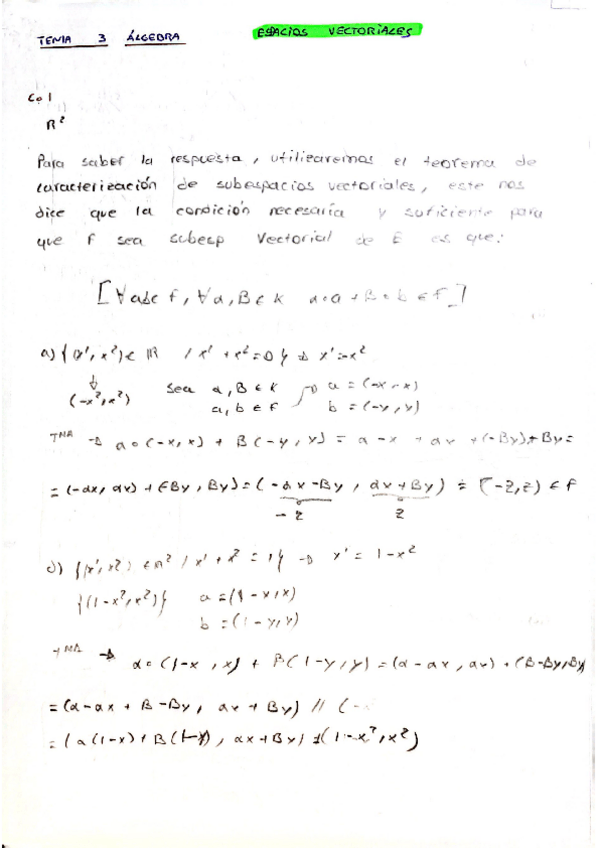 TEMA 3 ÁLGEBRA
ESPACIOS VECTORIALES
Co 1
R²
Para saber la respuesta, utilizaremos el teorema de
caracterización de subespacios vectoriales, este nos
dice que la condición necesaria y suficiente para
que F sea subesp Vectorial de E es que:
[∀a,b∈F, ∀α,B∈K α∘a+B∘b∈F]
a) {(x¹,x²)∈ℝ / x¹+x²=0} ⇒ x¹=-x²
↓
(-x²,x²)
Sea α,B∈K
a,b∈F
⇒ a=(-x,x)
b=(-y,y)
⇒ α∘(-x,x) + B(-y,y) = α-x + αx +(-By)+By=
=(-αx,αx)+(-By,By)=(-αx-By, αx+By) = (-z,z)∈F
-z z
{(x¹,x²)∈R² / x¹+x²=1} ⇒ x¹=1-x²
{(1-x²,x²)} a=(1-x,x)
b=(1-y,y)
⇒ α∘(1-x,x) + B(1-y,y)=(α-αx,αx)+(B-By,By)
=(α-αx+B-By, αx+By) // (-
=(α(1-x)+B(1-y), αx+By) (1-x²,x²)